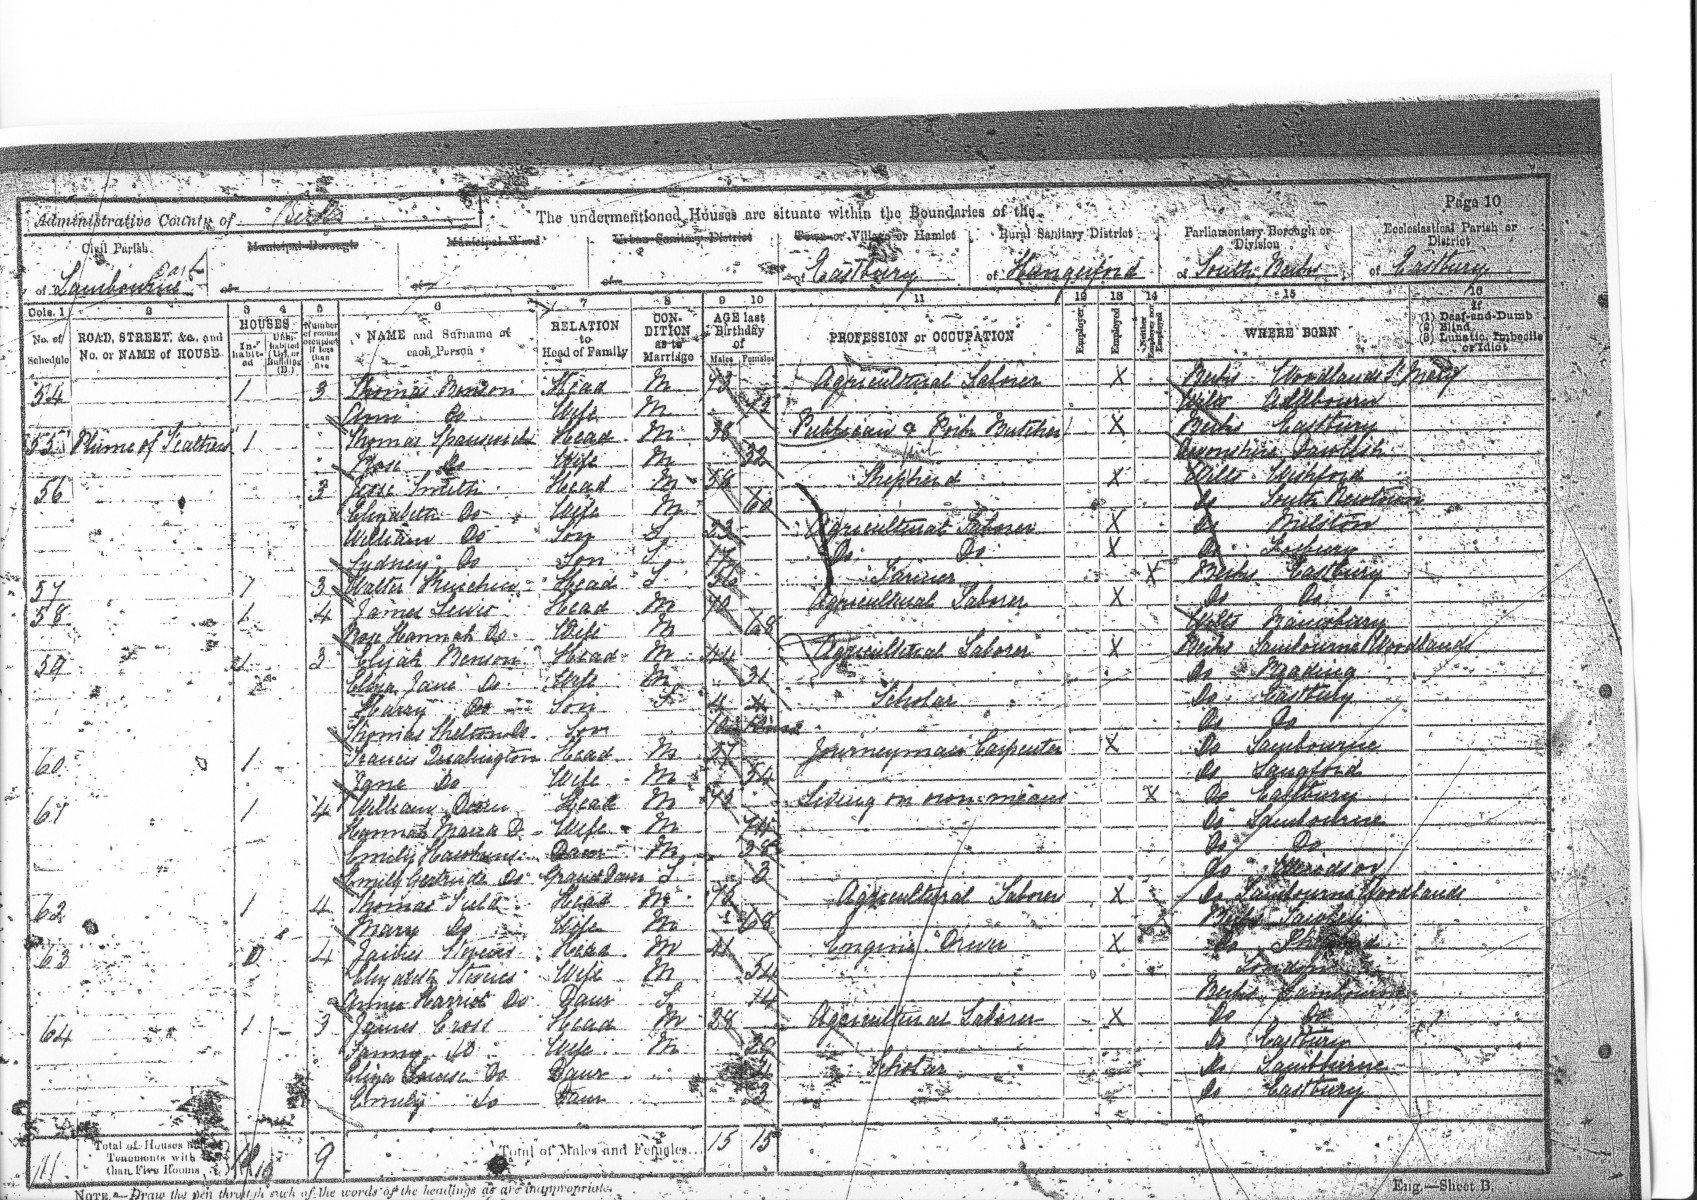 Page 10
Administrative County of Berks
The undermentioned Houses are situate within the Boundaries of the
Civil Parish
Municipal Borough
Municipal Ward
Urban Sanitary District
Town or Village or Hamlet
Rural Sanitary District
Parliamentary Borough or Division
Ecclesiastical Parish or District
of Lambourne Part
of
of
of
of Eastbury
of Hungerford
of South Berks
of Eastbury
Cols. 1 2 3 4 5 6 7 8 9 10 11 12 13 14 15 16
No. of Schedule
ROAD, STREET, &c., and No. or NAME of HOUSE
HOUSES
In-habit-ed
Number of rooms occupied if less than five
NAME and Surname of each Person
RELATION to Head of Family
CON-DITION as to Marriage
AGE last Birthday of
Males Females
PROFESSION or OCCUPATION
Employer
Employed
Neither Employer nor Employed
WHERE BORN
If
(1) Deaf-and-Dumb
(2) Blind
(3) Lunatic, Imbecile or Idiot
54 1 3 Thomas Benson Head M 43 Agricultural Laborer X Berks Woodlands St Mary
Ann Do Wife M Wilts Aldbourn
55 Plume of Feathers 1 Thomas Head M 38 Publican & Pork Butcher X Berks Eastbury
Rose Do Wife M 32 Devonshire Dawlish
56 3 Jesse Smith Head M 56 Shepherd X Wilts Wishford
Elizabeth Do Wife M 60 Do South Newton
William Do Son S 23 Agricultural Laborer X Do Milston
Sydney Do Son S 17 Do Do X Do
57 1 3 Walter Head S 56 Farmer X Berks Eastbury
58 1 4 James Lewis Head M 70 Agricultural Laborer X Do Do
Hannah Do Wife M 68 Wilts
59 1 3 Elijah Benson Head M 44 Agricultural Laborer X Berks Lambourne Woodlands
Eliza Jane Do Wife M 31 Do Reading
Harry Do Son S 4 Scholar Do Eastbury
Thomas Do Son Do Do
60 1 Francis Head M 57 Journeyman Carpenter X Do Lambourne
Jane Do Wife M 54 Do
61 1 4 William Head M Living on own means X Do Eastbury
Hannah Maria Do Wife M Do Lambourne
Emily Daur M 28 Do Do
Emily Gertrude Do Grand Daur S 3 Do Windsor
62 1 4 Thomas Head M 73 Agricultural Laborer X Do Lambourne Woodlands
Mary Do Wife M 68 Berks
63 4 Stevens Head M 41 Engine Driver X Do
Elizabeth Stevens Wife M 54 London
Annie Harriet Do Daur S 14 Berks Lambourne
64 1 3 James Cross Head M 28 Agricultural Laborer X Do Do
Fanny Do Wife M Do Eastbury
Eliza Louise Do Daur Scholar Do Lambourne
Emily Do Daur 3 Do Eastbury
11
Total of Houses and Tenements with less than Five Rooms
10 9
Total of Males and Females... 15 15
NOTE.—Draw the pen through such of the words of the headings as are inappropriate.
Eng.—Sheet B.